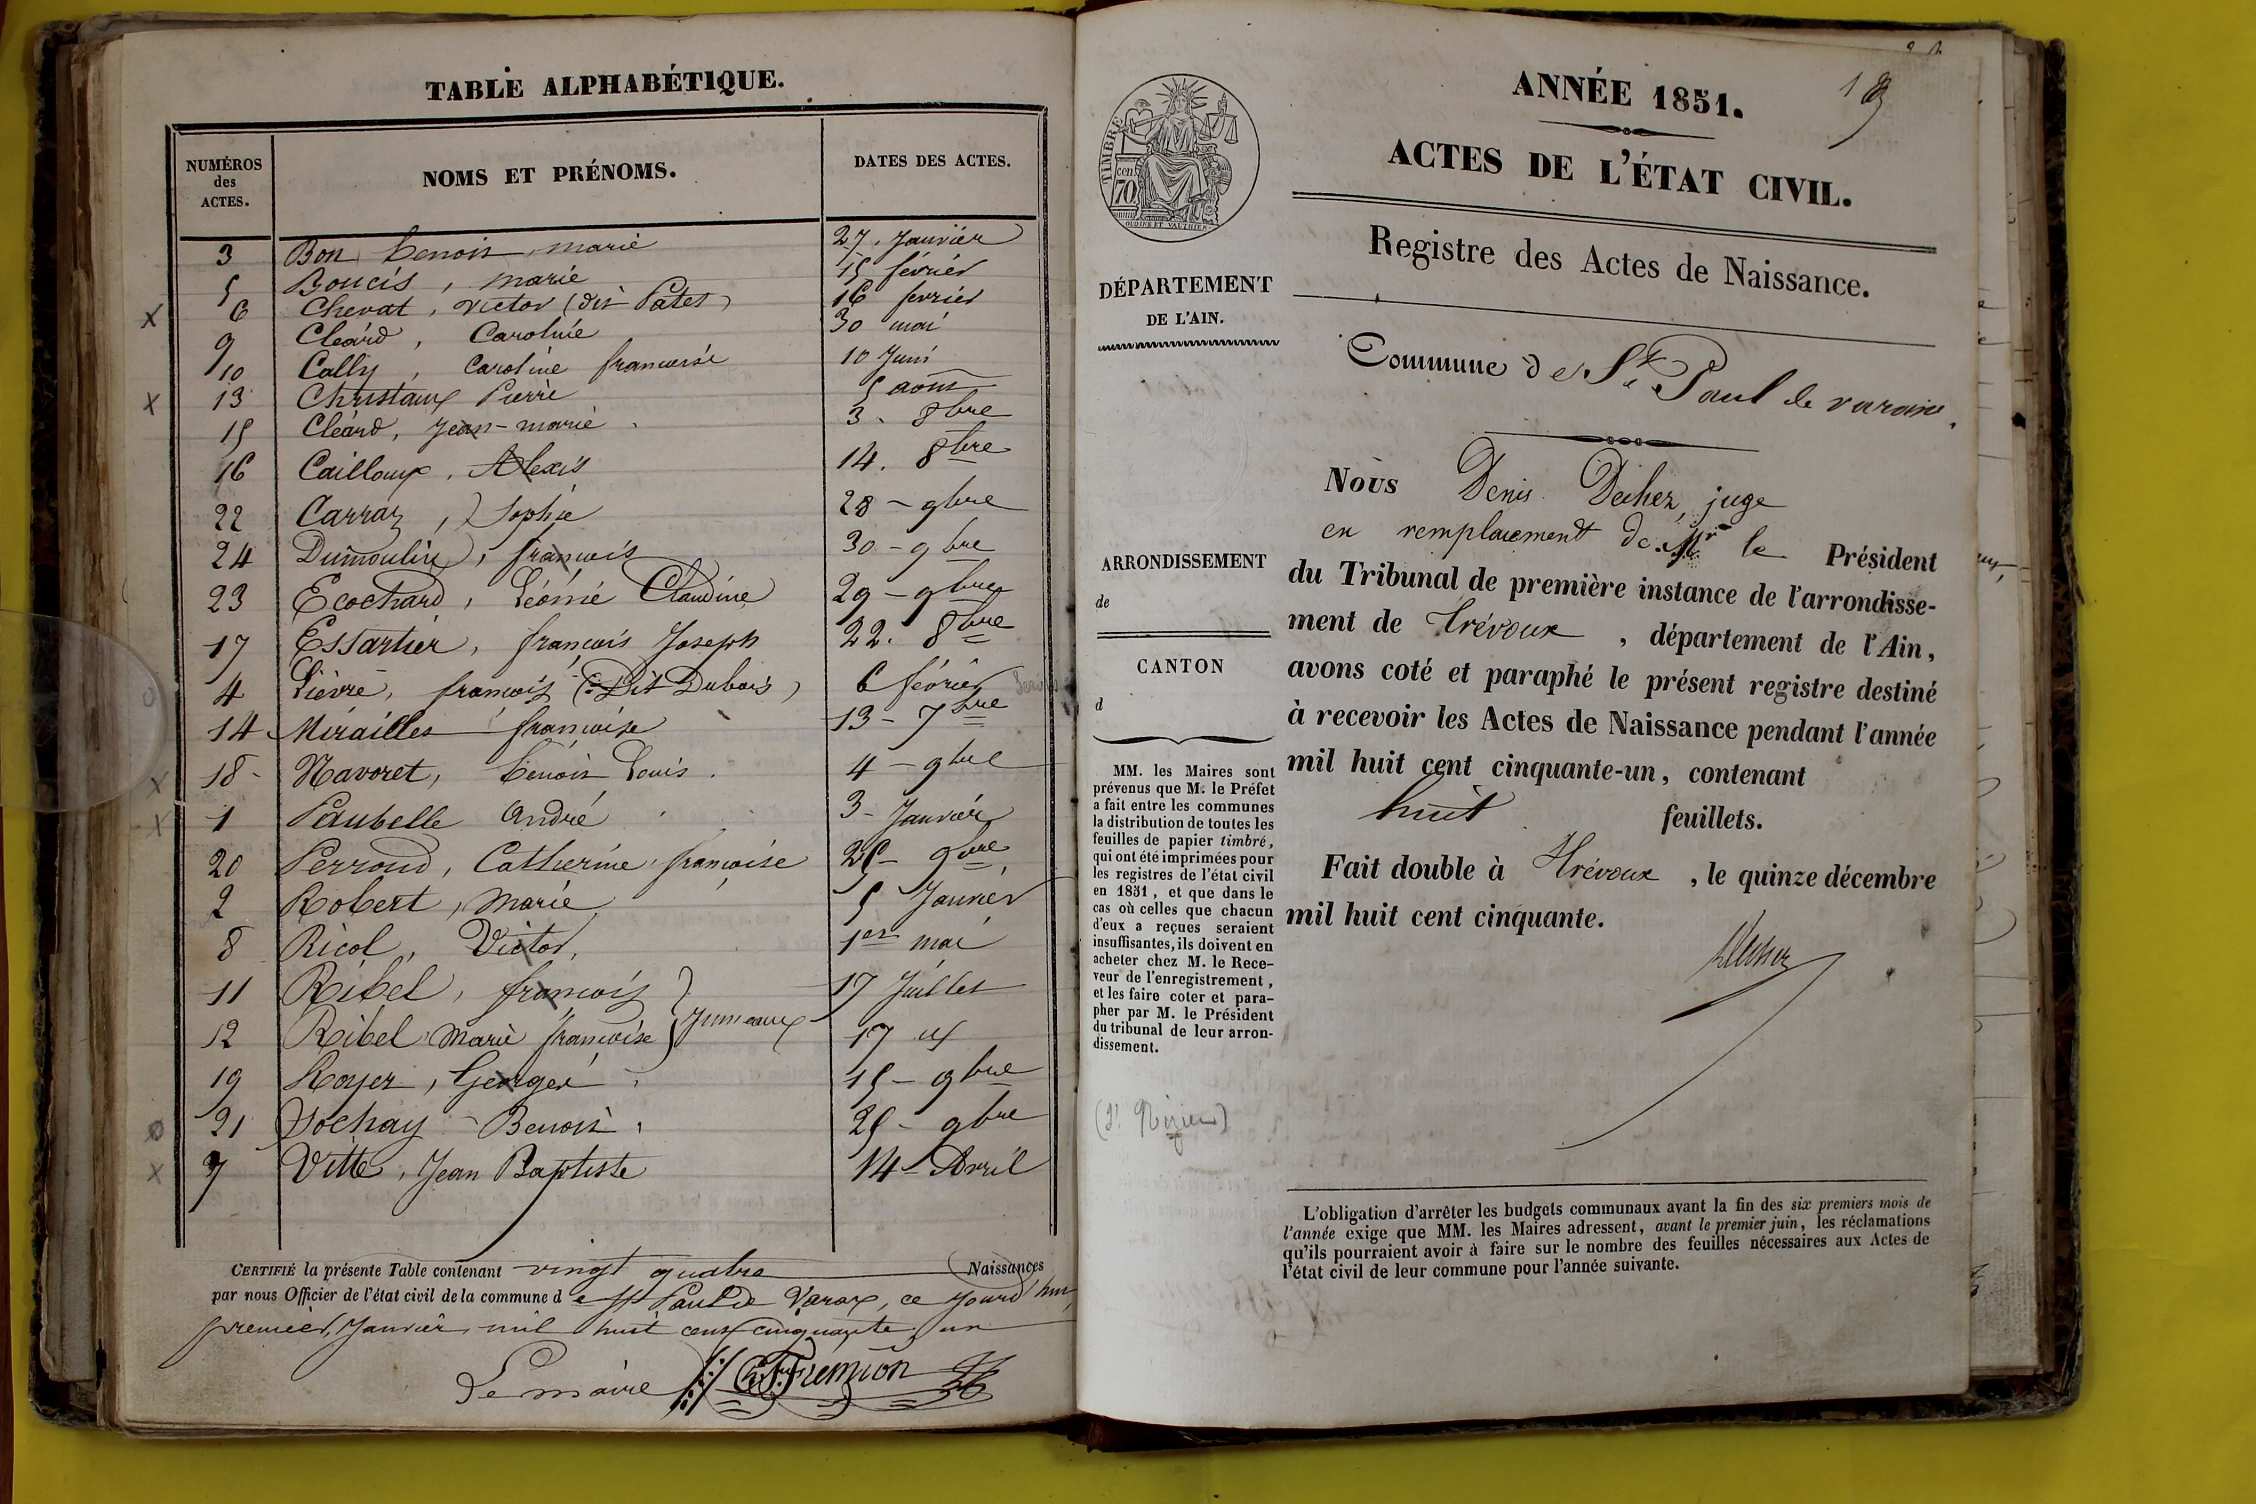 TABLE ALPHABÉTIQUE.
NUMÉROS des ACTES.
NOMS ET PRÉNOMS.
DATES DES ACTES.
3 Bon Benoit, marie 27. Janvier
5 Boucis, marie 15 février
6 Chevat, victor (dit Pates) 16 fevrier
9 Cléard, Caroline 30 mai
10 Cally, Caroline francoise 10 Juin
13 Christaux Pierre 5 aout
15 Cléard, Jean-marie 3. 8bre
16 Cailloux, Alexis 14. 8bre
22 Carraz, Sophie 28 - 9bre
24 Dumoulin, françois 30 - 9bre
23 Ecochard, Léonie Claudine 29 - 9bre
17 Essartier, françois Joseph 22. 8bre
4 Lièvre, françois (Dit Dubois) 6 février
14 Mirailles françoise 13 - 7bre
18 Navoret, Benoit Louis. 4 - 9bre
1 Paubelle André 3 - Janvier
20 Perroud, Catherine françoise 25 - 9bre
2 Robert, Marie 5 Janvier
8 Ricol, Victor, 1er mai
11 Ribel, françois 17 Juillet
12 Ribel Marie françoise } Jumeaux 17 id
19 Royer, George 15 - 9bre
21 Vochay - Benoit 25 - 9bre
7 Vitte, Jean Baptiste 14 - Avril
CERTIFIÉ la présente Table contenant vingt quatre Naissances
par nous Officier de l'état civil de la commune de St Paul de Varax, ce jourd'hui
premier, Janvier mil huit cent cinquante un
Le maire Fremion
ANNÉE 1851.
ACTES DE L'ÉTAT CIVIL.
Registre des Actes de Naissance.
TIMBRE
cent 70
DÉPARTEMENT
DE L'AIN.
ARRONDISSEMENT
de
CANTON
d
MM. les Maires sont
prévenus que M. le Préfet
a fait entre les communes
la distribution de toutes les
feuilles de papier timbré,
qui ont été imprimées pour
les registres de l'état civil
en 1851, et que dans le
cas où celles que chacun
d'eux a reçues seraient
insuffisantes, ils doivent en
acheter chez M. le Rece-
veur de l'enregistrement,
et les faire coter et para-
pher par M. le Président
du tribunal de leur arron-
dissement.
Commune de St Paul de varax.
Nous Denis Dechez, juge
en remplacement de Mr le Président
du Tribunal de première instance de l'arrondisse-
ment de Trévoux, département de l'Ain,
avons coté et paraphé le présent registre destiné
à recevoir les Actes de Naissance pendant l'année
mil huit cent cinquante-un, contenant
huit feuillets.
Fait double à Trévoux, le quinze décembre
mil huit cent cinquante.
Dechez
L'obligation d'arrêter les budgets communaux avant la fin des six premiers mois de
l'année exige que MM. les Maires adressent, avant le premier juin, les réclamations
qu'ils pourraient avoir à faire sur le nombre des feuilles nécessaires aux Actes de
l'état civil de leur commune pour l'année suivante.